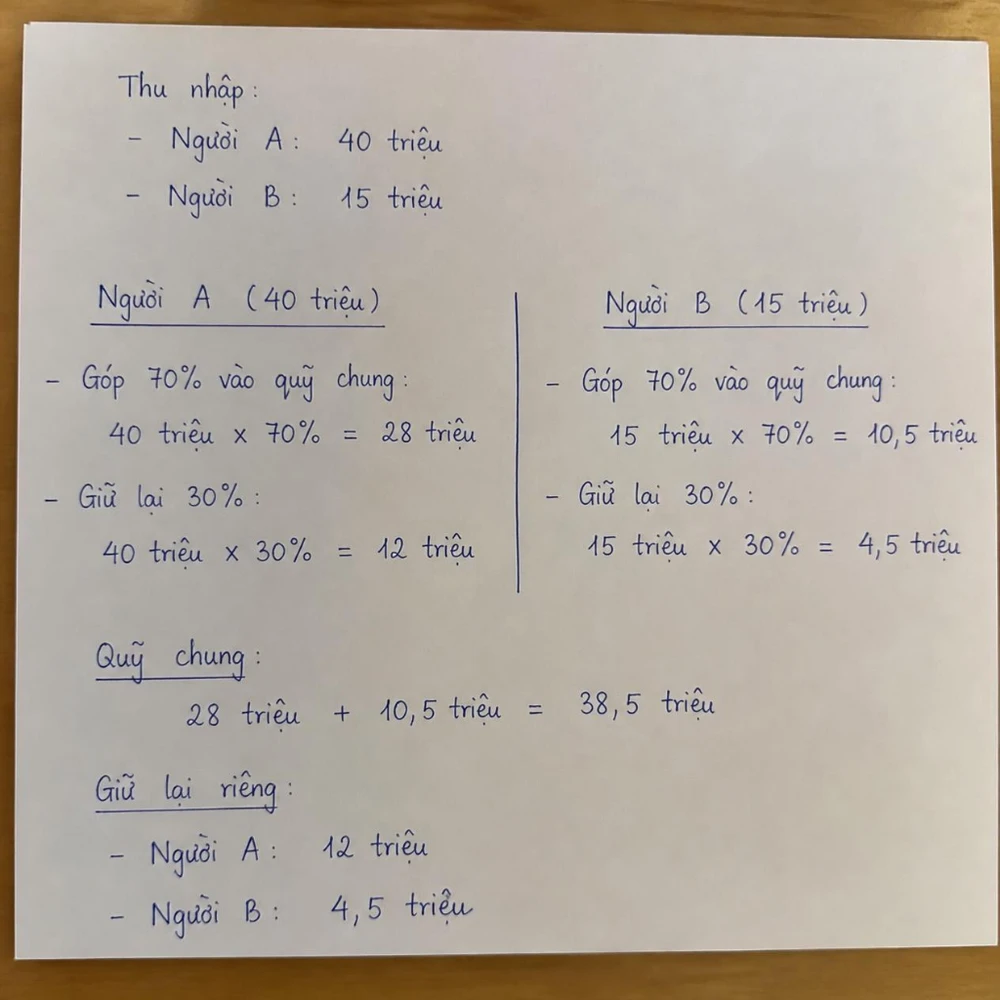 Thu nhập:
- Người A: 40 triệu
- Người B: 15 triệu
Người A (40 triệu)
- Góp 70% vào quỹ chung:
40 triệu x 70% = 28 triệu
- Giữ lại 30%:
40 triệu x 30% = 12 triệu
Người B (15 triệu)
- Góp 70% vào quỹ chung:
15 triệu x 70% = 10,5 triệu
- Giữ lại 30%:
15 triệu x 30% = 4,5 triệu
Quỹ chung:
28 triệu + 10,5 triệu = 38,5 triệu
Giữ lại riêng:
- Người A: 12 triệu
- Người B: 4,5 triệu